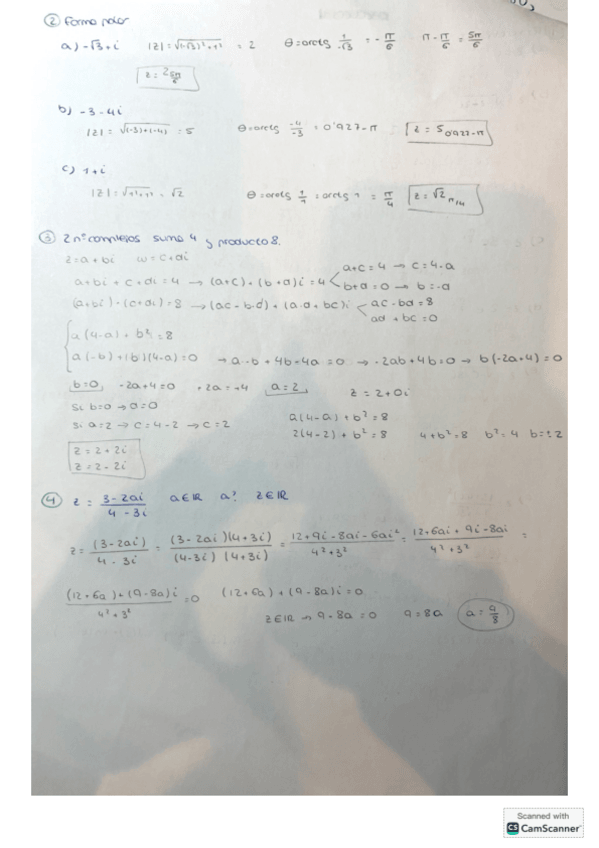 ② Forma polar
a) -√3+i |z| = √(-√3)²+1² = 2 θ=arctg 1/-√3 = -π/6 π - π/6 = 5π/6
z = 2 5π/6
b) -3-4i
|z| = √(-3)+(-4) = 5 θ=arctg -4/-3 = 0'927-π z = 5 0'927-π
c) 1+i
|z| = √1²+1² = √2 θ=arctg 1/1 = arctg 1 = π/4 z = √2 π/4
③ 2 nº complejos suma 4 y producto 8.
z=a+bi w=c+di
a+bi+c+di=4 → (a+c)+(b+d)i=4 a+c=4 → c=4-a
b+d=0 → b=-d
(a+bi)·(c+di)=8 → (ac-bd)+(ad+bc)i ac-bd=8
ad+bc=0
a(4-a)+b²=8
a(-b)+(b)(4-a)=0 → -a·b+4b-4a=0 → -2ab+4b=0 → b(-2a+4)=0
b=0, -2a+4=0 +2a=+4 a=2 z=2+0i
Si b=0 → d=0
Si a=2 → c=4-2 → c=2
a(4-a)+b²=8
2(4-2)+b²=8 4+b²=8 b²=4 b=±2
z=2+2i
z=2-2i
④ z = 3-2ai/4-3i a∈ℝ a? z∈ℝ
z = (3-2ai)/4-3i = (3-2ai)(4+3i)/(4-3i)(4+3i) = 12+9i-8ai-6ai²/4²+3² = 12+6ai+9i-8ai/4²+3² =
(12+6a)+(9-8a)i/4²+3² =0 (12+6a)+(9-8a)i=0
z∈ℝ → 9-8a=0 9=8a a=9/8
Scanned with
CS CamScanner